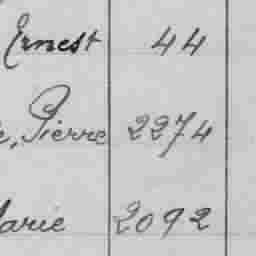 Ernest 44
e, Pierre 2274
arie 2092